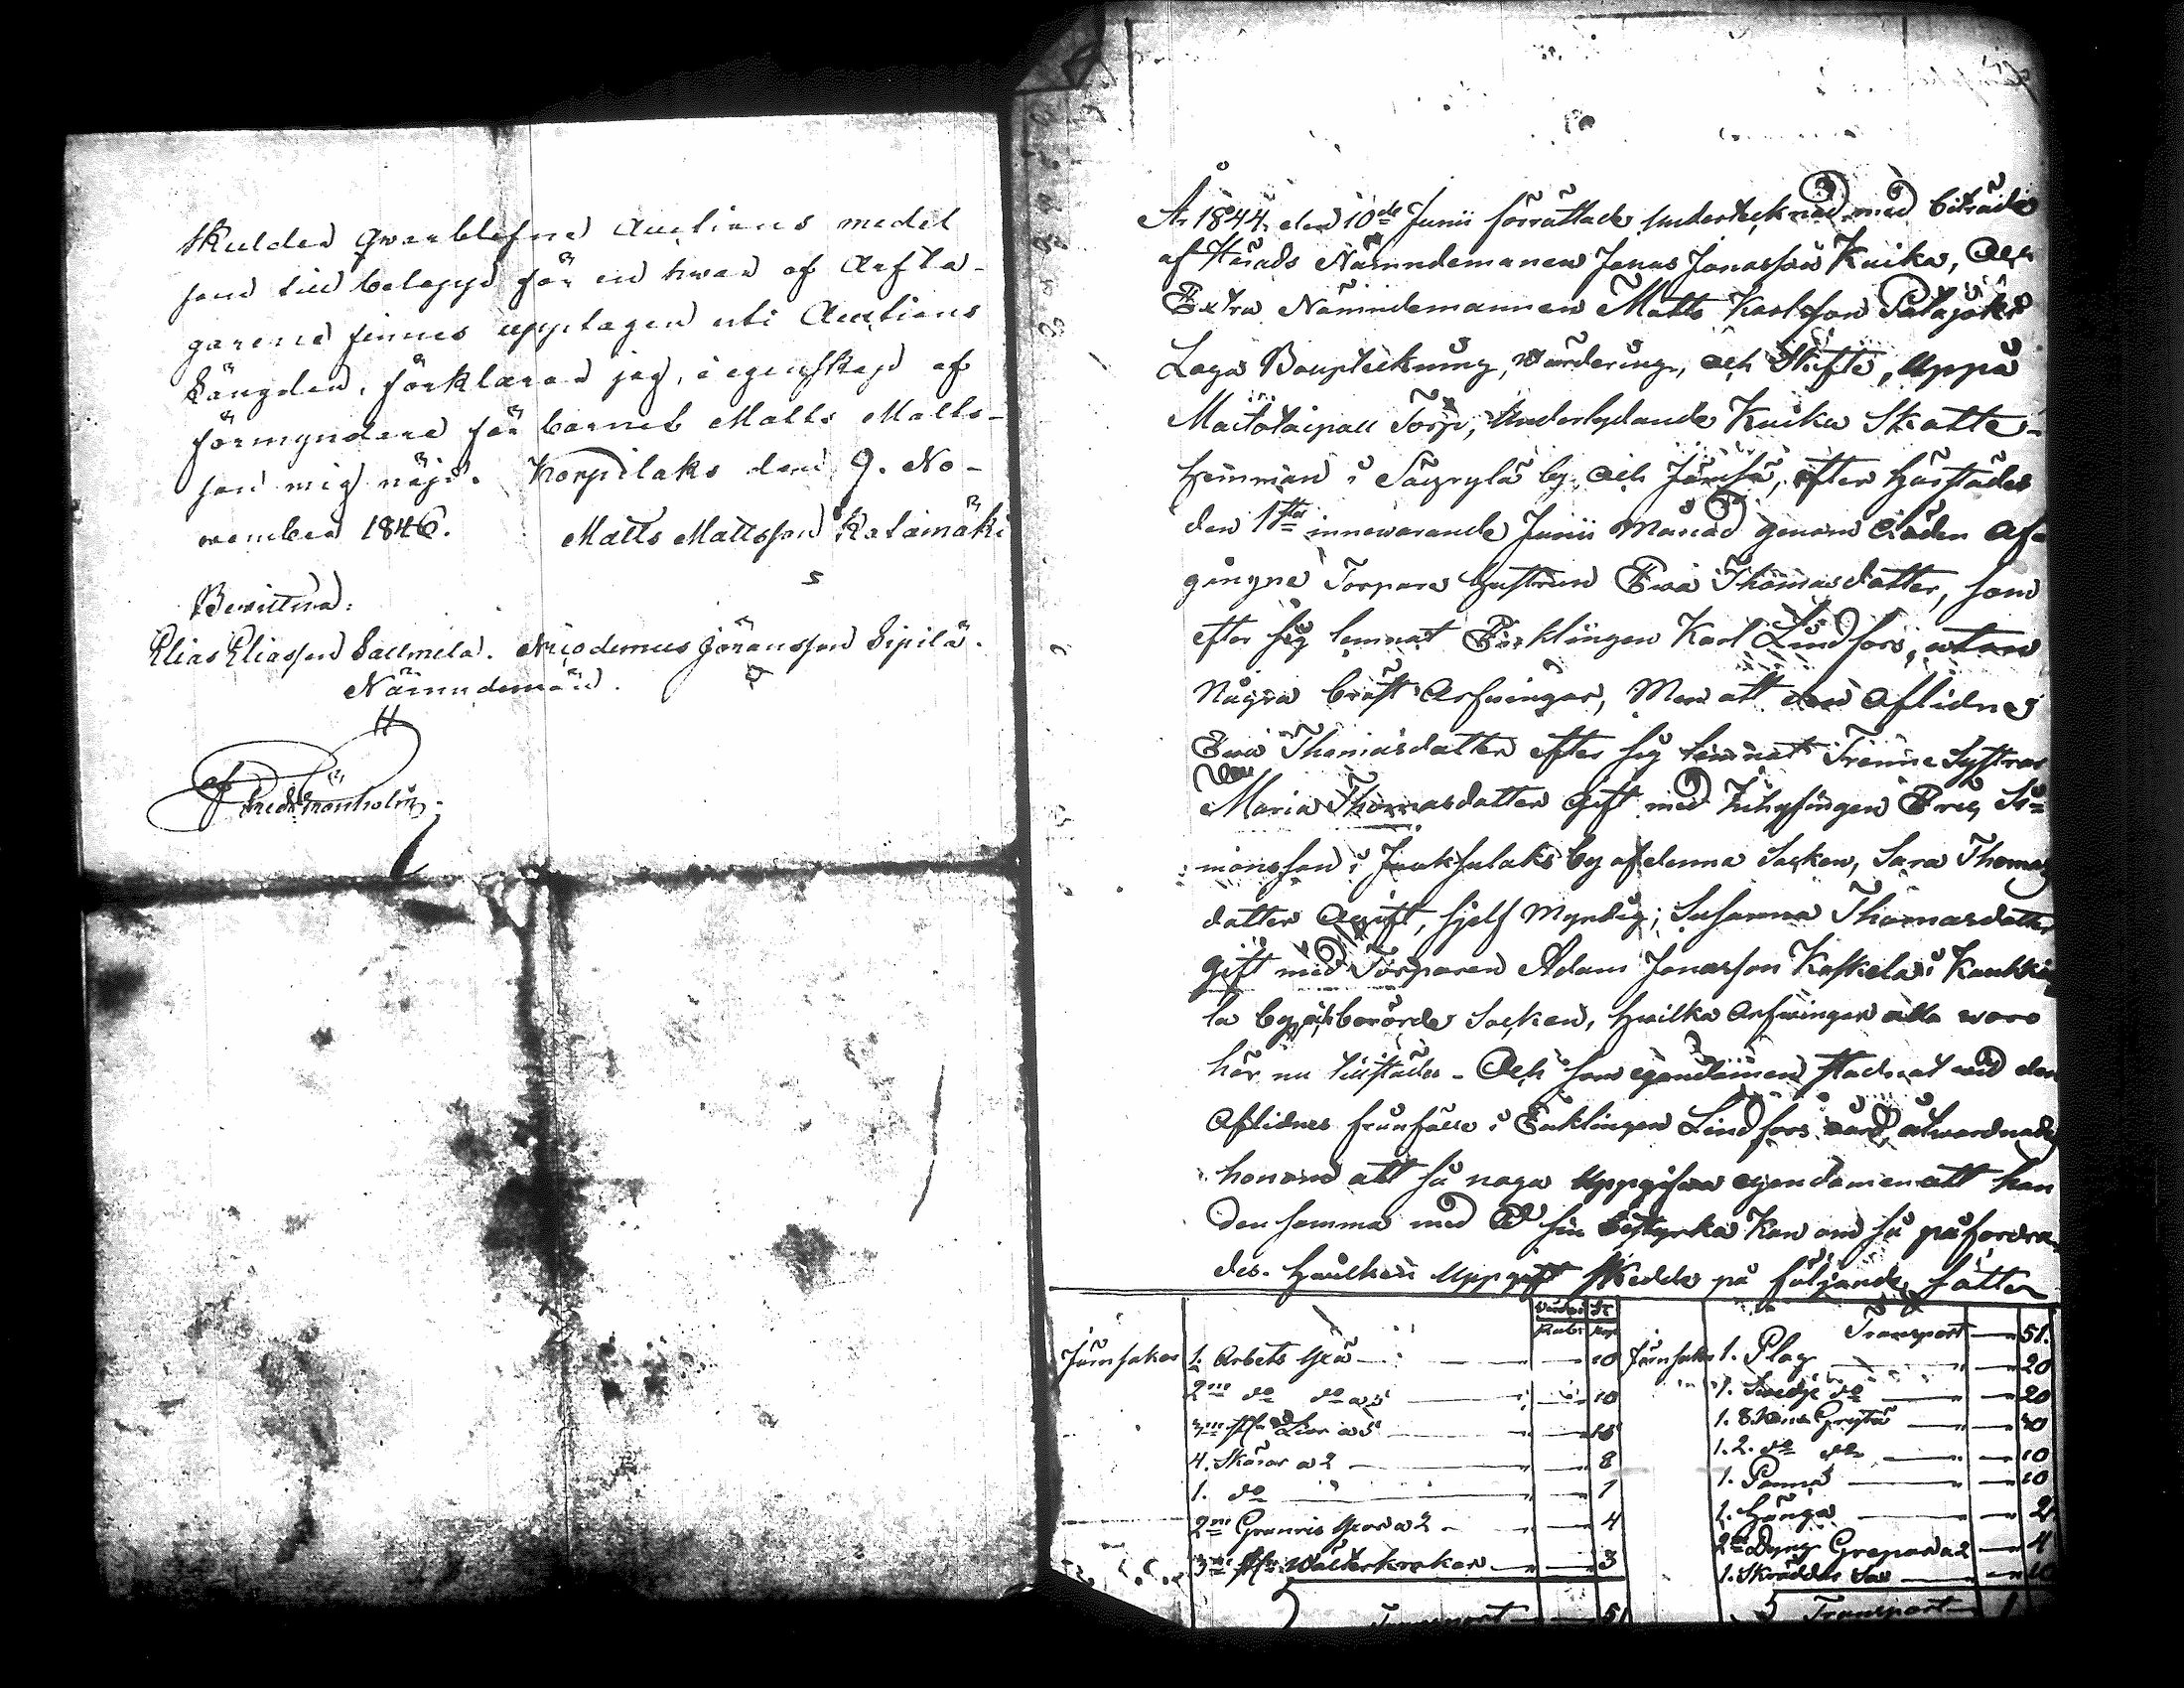 skulder qvarblefne Auctions medel
som till belopp för en hwar af Arfta-
garene finnes upptagen uti Auctions
Längden, förklarar jag, i egenskap af
förmyndare för barnet Matts Matts-
son mig nöjd. Korpilaks den 9. No-
vember 1846. Matts Mattsson Kataimäki
Bevittna:
Elias Eliasson Salmela. Nicodemus Jöransson Sipilä.
Nämndemän.
År 1844 den 10de Junii förrättade undertecknad med biträde
af Härads Nämndemannen Jonas Jonasson Kuika, Och
Extra Nämndemannen Matts Karlsson Patajoki
Laga Bouptekning, Wärdering, och Skifte, uppå
Torp, Underlydande Kuika Skatte-
hemman i Säyrylä by och Jämsä, efter härstädes
den 1sta innewarande Junii Månad genom döden Af-
gångne Torpare hustrun Ewa Thomasdotter, som
efter sig lemnat Enklingen Karl Lindfors, utan
Några bröst Arfwingar, Men att den Aflidnes
Ewa Thomasdotter efter sig lemnat Trenne Systrar
Maria Thomasdotter Gift med Inhysingen Eric Si-
monsson i Juoksulaks by af denna Socken, Sara Thomas
dotter Ogift, sjelf Myndig; Susanna Thomasdotter
gift med Torparen Adam Jonasson Koskela i Kaukki
la by ofberörde Socken, hwilka Arfwingar alla woro
här nu tillstädes - Och som egendomen stadnat wid den
Aflidnes frånfälle i Enklingen Lindfors wård, åtwarnades
honom att så noga Uppgifwa egendomen att han
den samma med Ed sin bestyrka kan om så påfordra-
des. Hwilken Uppgift skedde på följande sätt
Wärde Sr
Rub: Kop
Jernsaker 1. Arbets Yxa 10 Jernsaker Transport 51.
2ne do do a 5 10 1. Plog 20
3ne st: Liar a 5 15 1. Swedje do 20
4. Skäror a 2 8 1. 8. Kans Gryta 30
1. do 1 1. 2. do do 10
2ne Granris Yxor a 2 4 1. Panna 10
3ne st: Wälterkrokar 3 1. Hänga 2
2ne Dyng Grepar a 2 4
1. Skräddar Sax 10
Transport 51 Transport 1